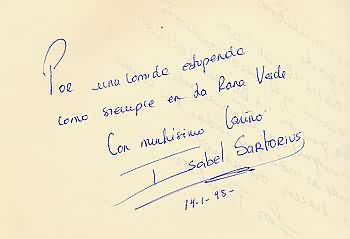 Por una comida estupenda
como siempre en la Rana Verde
Con muchísimo Cariño
Isabel Sartorius
14-1-98-